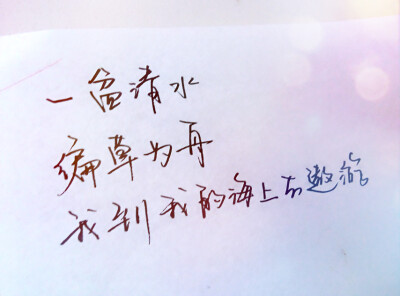 一盆清水
编草为舟
我到我的海上去遨游